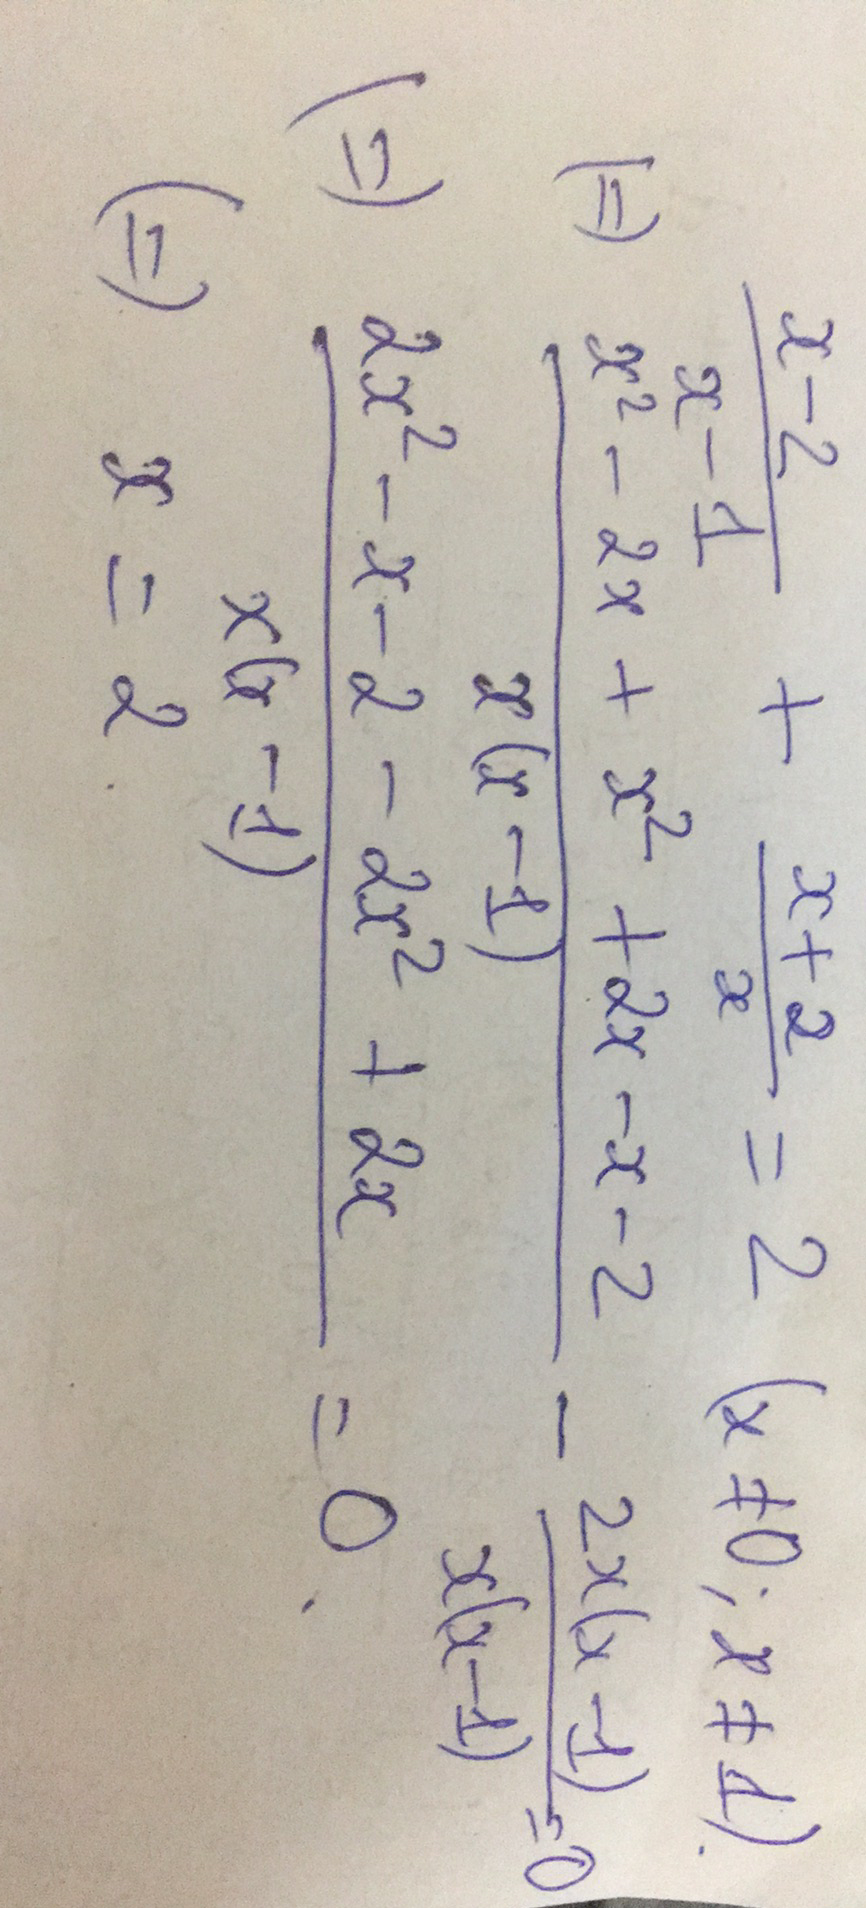 x-2/x-1 + x+2/x = 2 (x ≠ 0; x ≠ 1).
(=) x² - 2x + x² + 2x - x - 2/x(x - 1) - 2x(x - 1)/x(x - 1) = 0
(=) 2x² - x - 2 - 2x² + 2x/x(x - 1) = 0.
(=) x = 2.